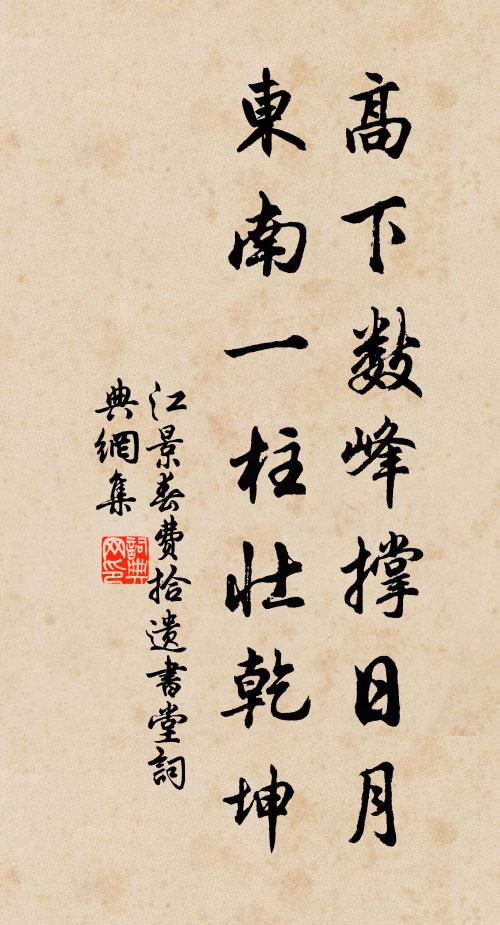 高下数峰撐日月
東南一柱壮乾坤
江景春費拾遺書堂詞
典網集
詞典
网印